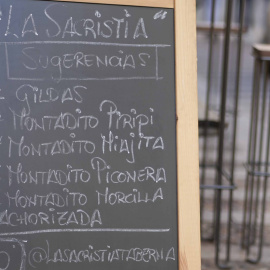 "LA SACRISTIA"
SUGERENCIAS
- GILDAS
MONTADITO PIRIPI
MONTADITO MIAJITA
MONTADITO PICONERA
MONTADITO MORCILLA
ACHORIZADA
@LASACRISTIATABERNA